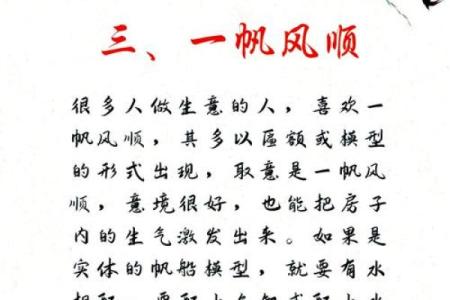 三、一帆风顺
很多人做生意的人，喜欢一
帆风顺，其多以區额或模型
的形式出现，取意是一帆风
顺，意境很好，也能把房子
内的生气激发出来。如果是
实体的帆船模型，就要有水